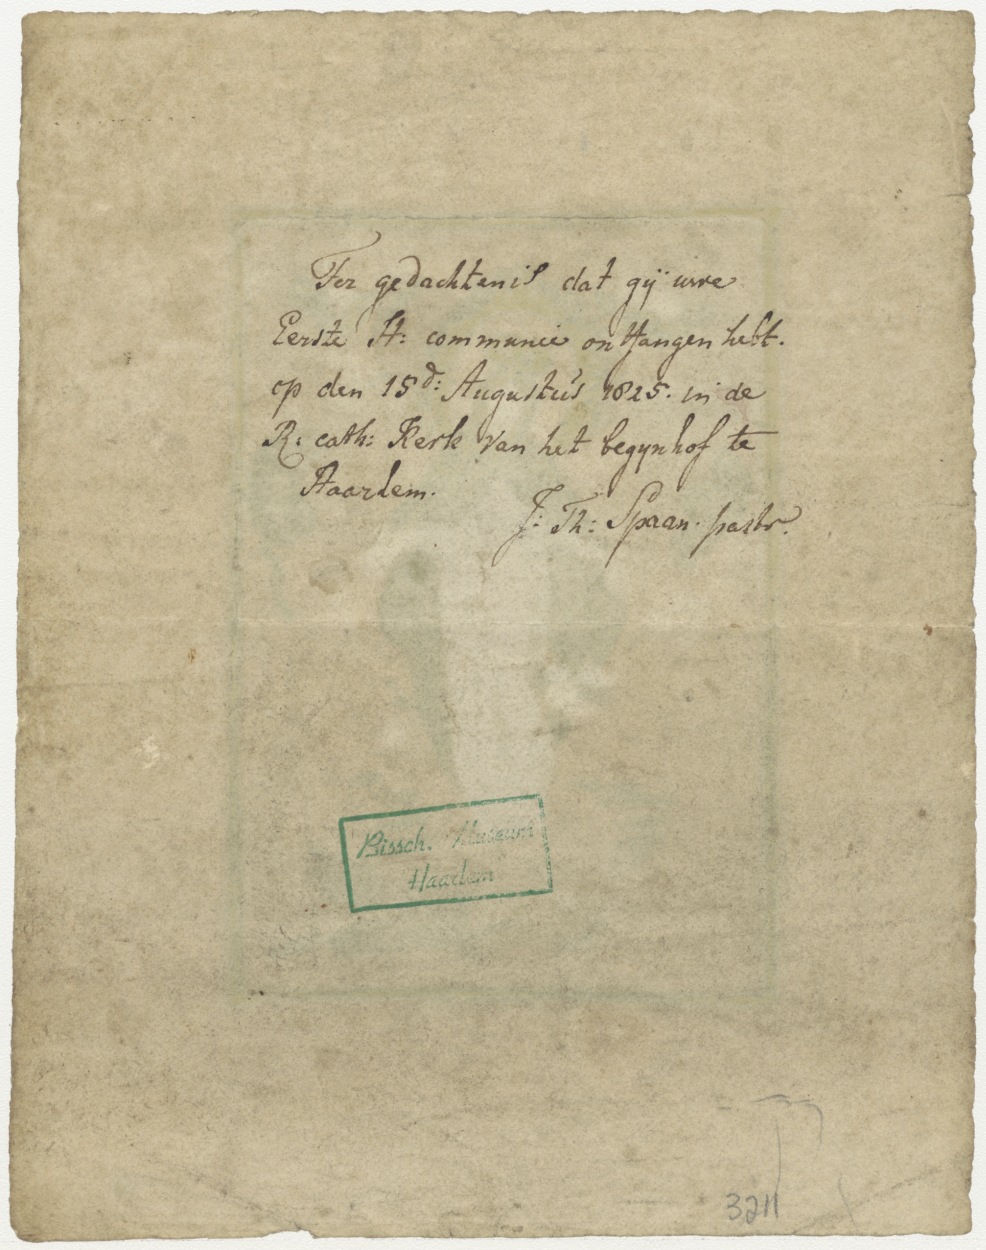 Ter gedachtenis dat gij uwe
Eerste H: communie ontfangen hebt.
op den 15d: Augustus 1825. in de
R: cath: Kerk van het begynhof te
Haarlem.
J: Th: Spaan. pastr.
Bissch. Museum
Haarlem
3211